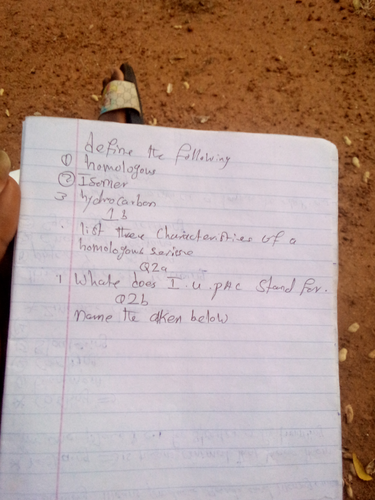 define the following
① homologous
② Isomer
3 hydrocarbon
1b
list three Characteristics of a
homologous serirse
Q2a
1 Whate does I.u.pAc Stand for.
Q2b
name the alken below